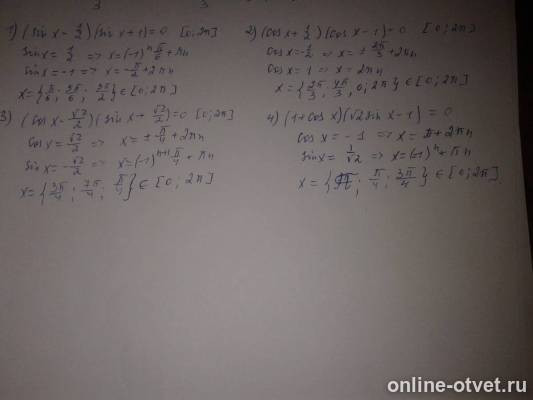 3 3
1) (sin x - 1/2)(sin x + 1) = 0 [0; 2π]
sin x = 1/2 => x = (-1)^n π/6 + πn
sin x = -1 => x = -π/2 + 2πn
x = {π/6; 5π/6; 3π/2} ∈ [0; 2π]
2) (cos x + 1/2)(cos x - 1) = 0 [0; 2π]
cos x = -1/2 => x = ± 2π/3 + 2πn
cos x = 1 => x = 2πn
x = {2π/3; 4π/3; 0; 2π} ∈ [0; 2π]
3) (cos x - √2/2)(sin x + √2/2) = 0 [0; 2π]
cos x = √2/2 => x = ± π/4 + 2πn
sin x = -√2/2 => x = (-1)^(n+1) π/4 + πn
x = {5π/4; 7π/4; π/4} ∈ [0; 2π]
4) (1 + cos x)(√2 sin x - 1) = 0
cos x = -1 => x = π + 2πn
sin x = 1/√2 => x = (-1)^n + πn
x = {π; π/4; 3π/4} ∈ [0; 2π]
online-otvet.ru